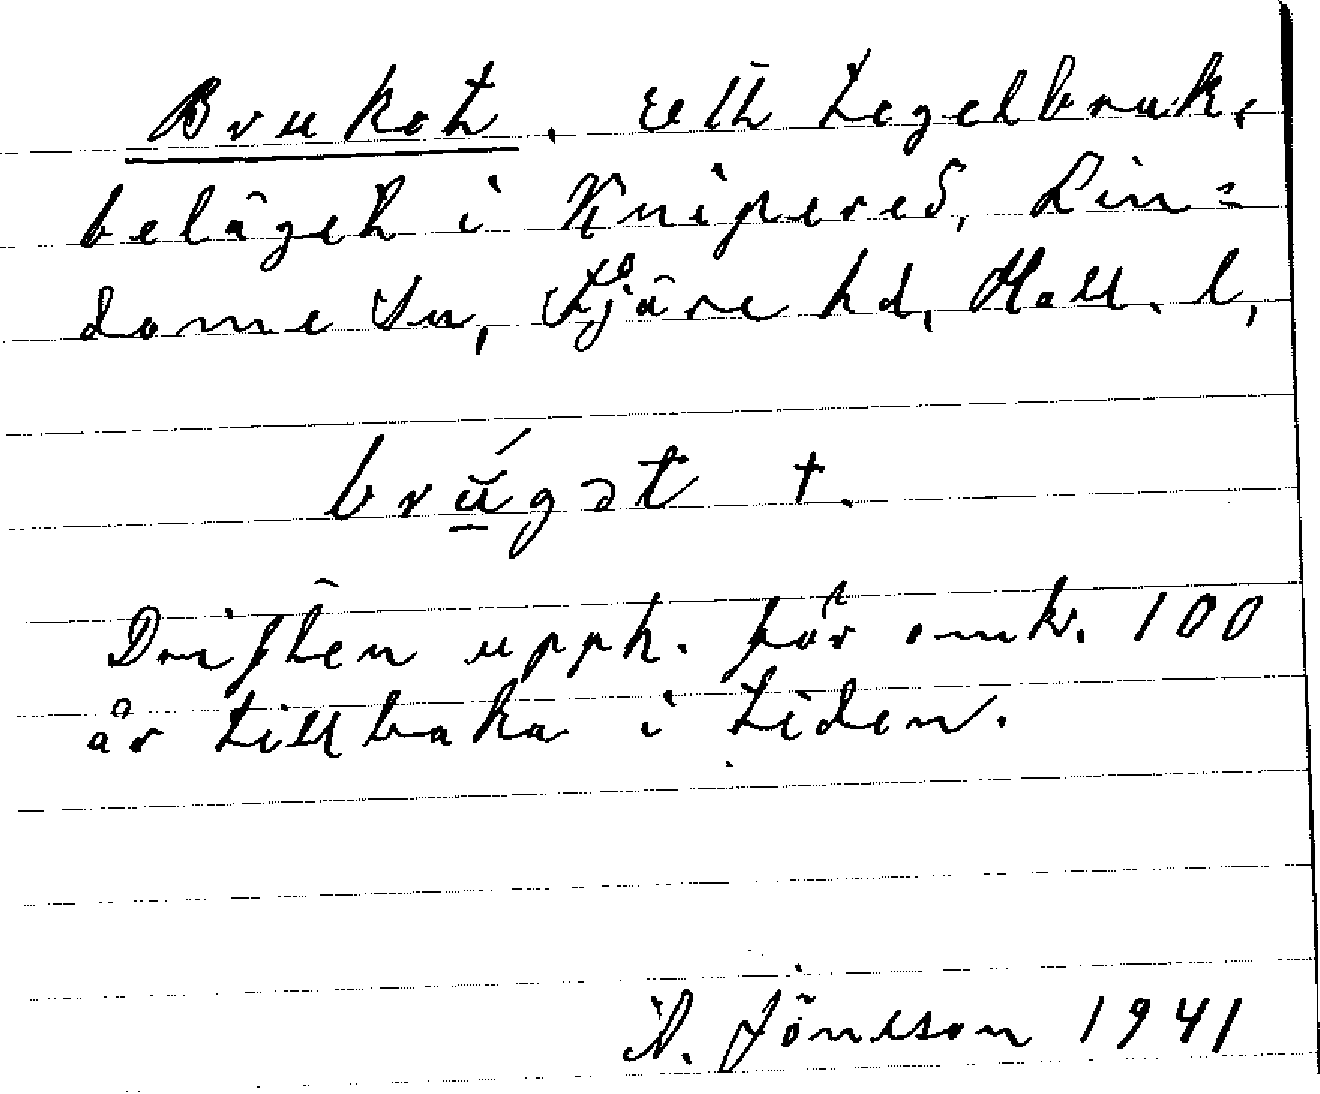 Bruket. ett tegelbruk,
beläget i Knipered, Lin=
dome sn, Fjäre hd, Hall. l,
brúgət †.
Driften upph. för omkr. 100
år tillbaka i tiden.
A. Jönsson 1941